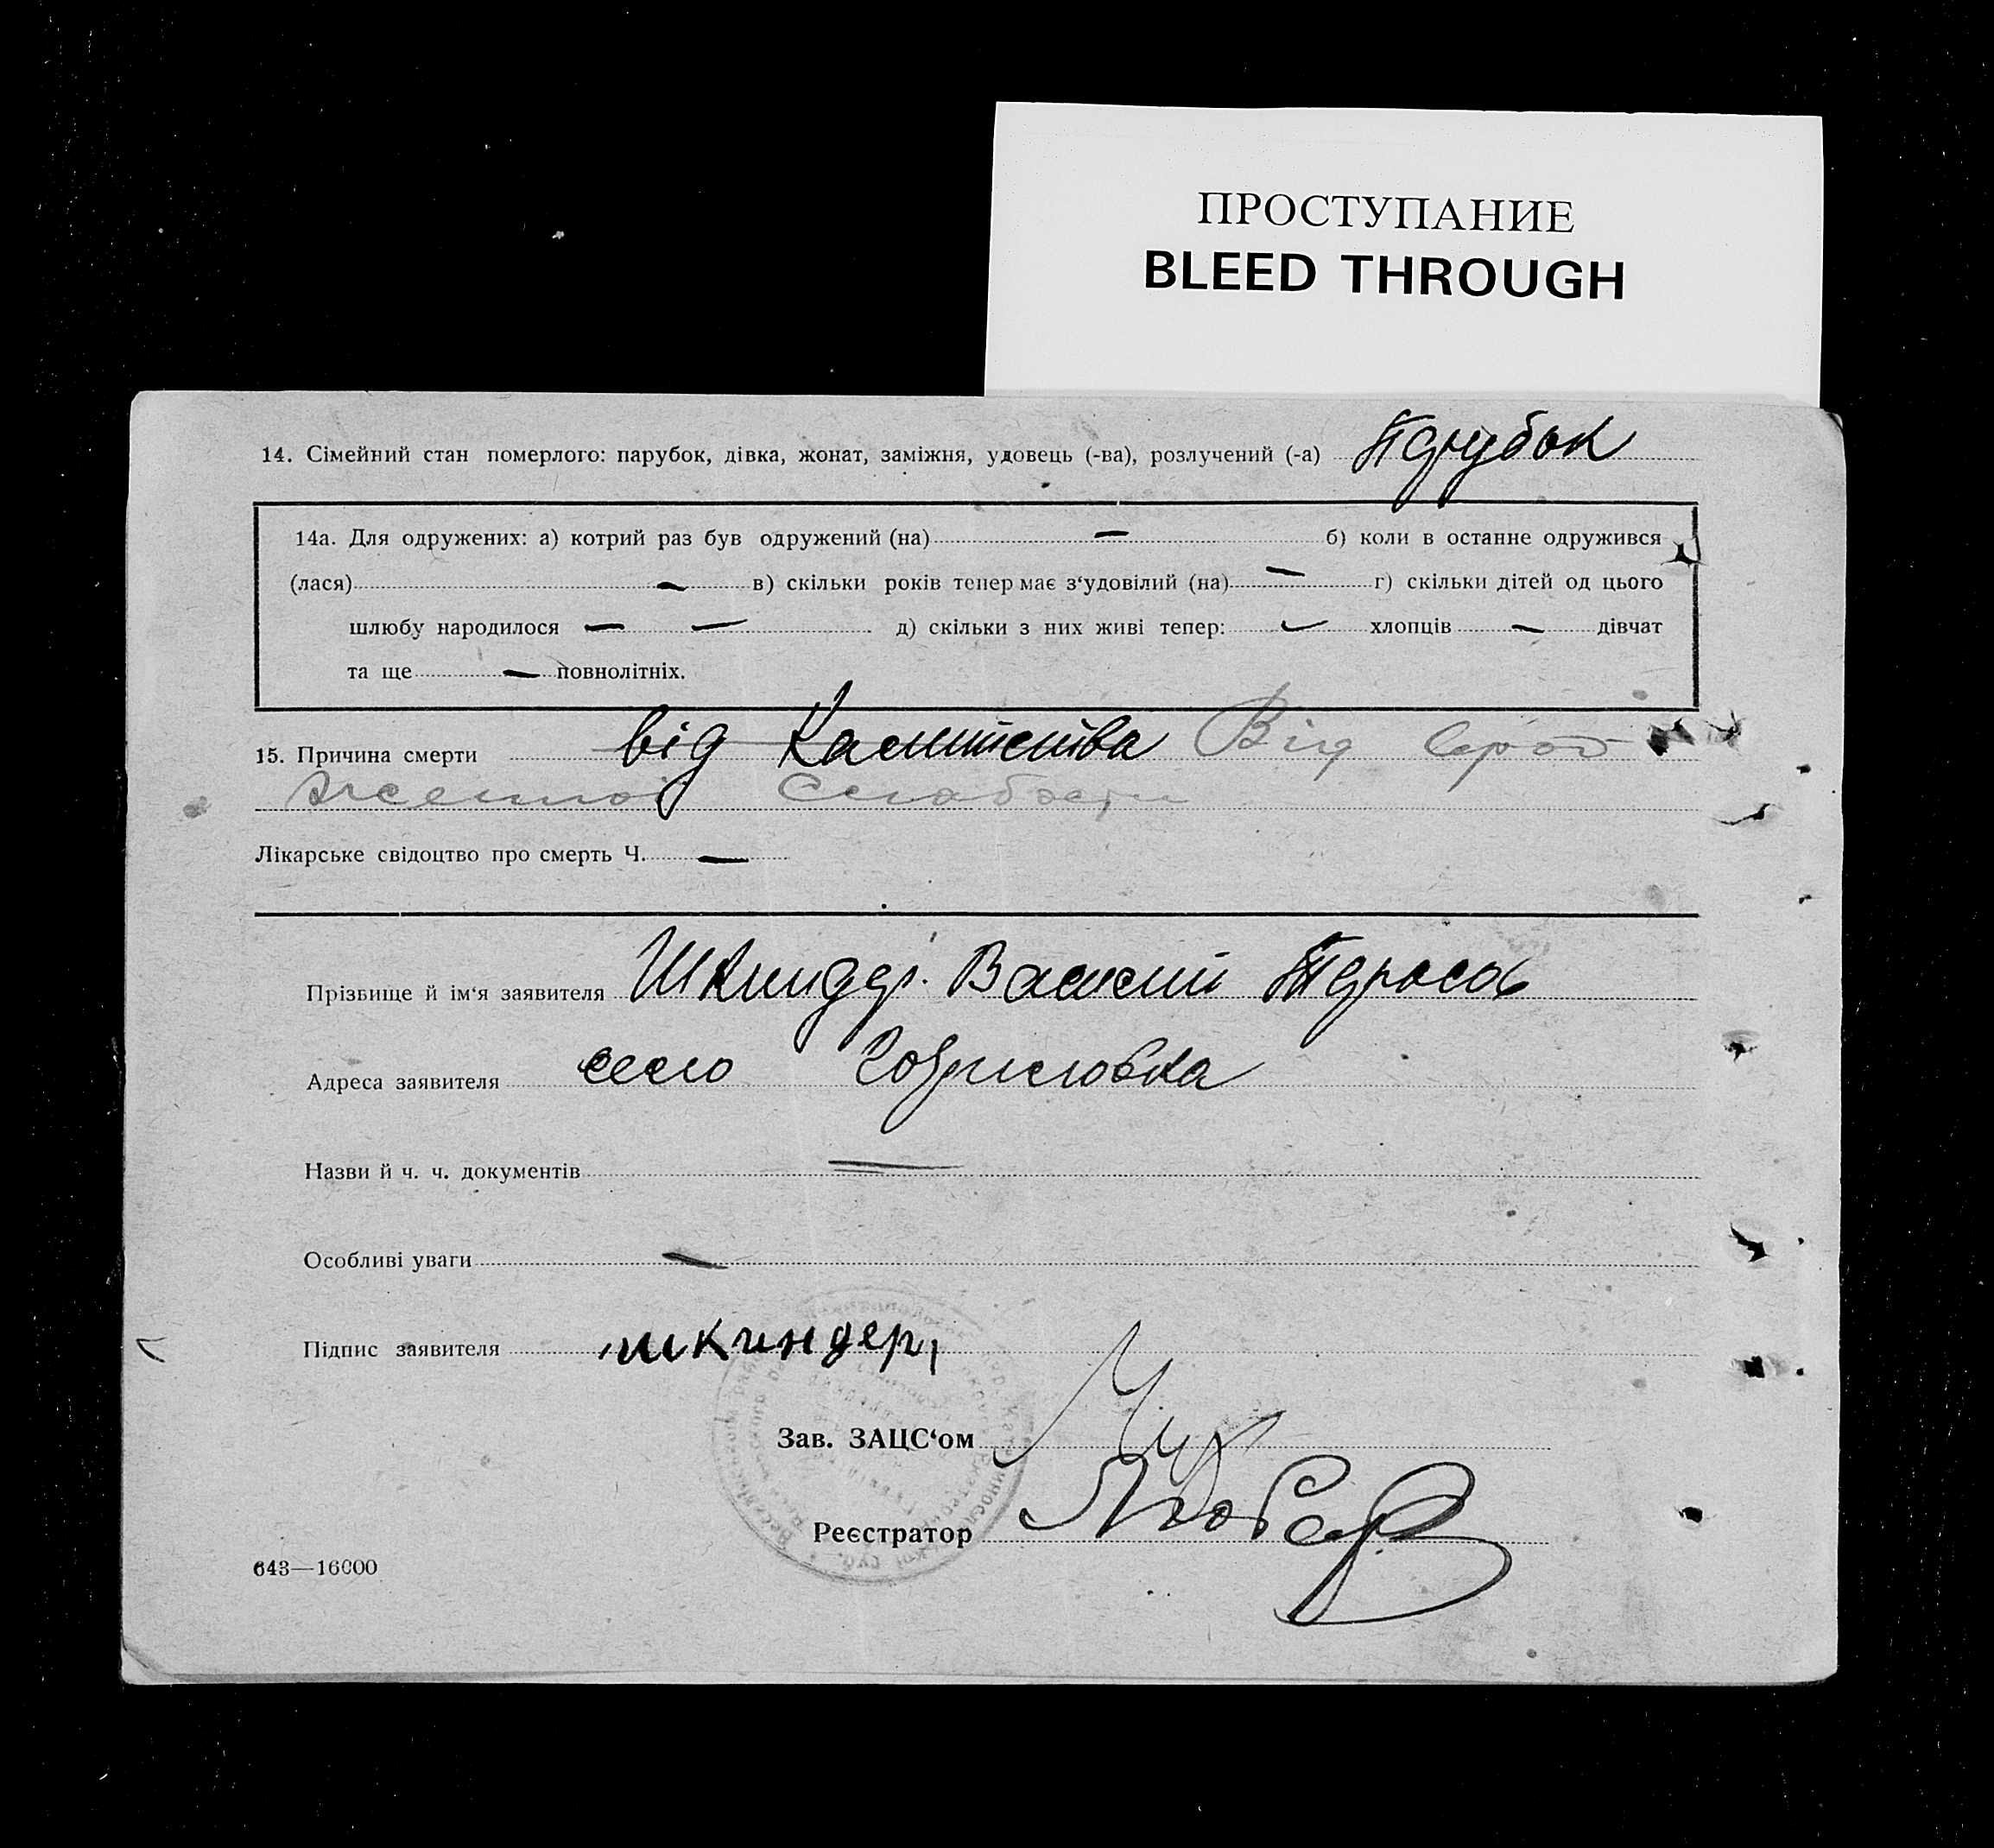 ПРОСТУПАНИЕ
BLEED THROUGH
14. Сімейний стан померлого: парубок, дівка, жонат, заміжня, удовець (-ва), розлучений (-а) Парубок
14а. Для одружених: а) котрий раз був одружений (на) — б) коли в останне одружився
(лася) — в) скільки років тепер має з‘удовілий (на) — г) скільки дітей од цього
шлюбу народилося — — д) скільки з них живі тепер: — хлопців — дівчат
та ще — повнолітніх.
15. Причина смерти від Від врод
женной Слабости
Лікарське свідоцтво про смерть Ч. —
Прізвище й ім‘я заявителя Шкиндер. Василий Тарасов
Адреса заявителя село Гавриловка
Назви й ч. ч. документів —
Особливі уваги —
Підпис заявителя шкиндер
Зав. ЗАЦС‘ом
Реєстратор
643—16000